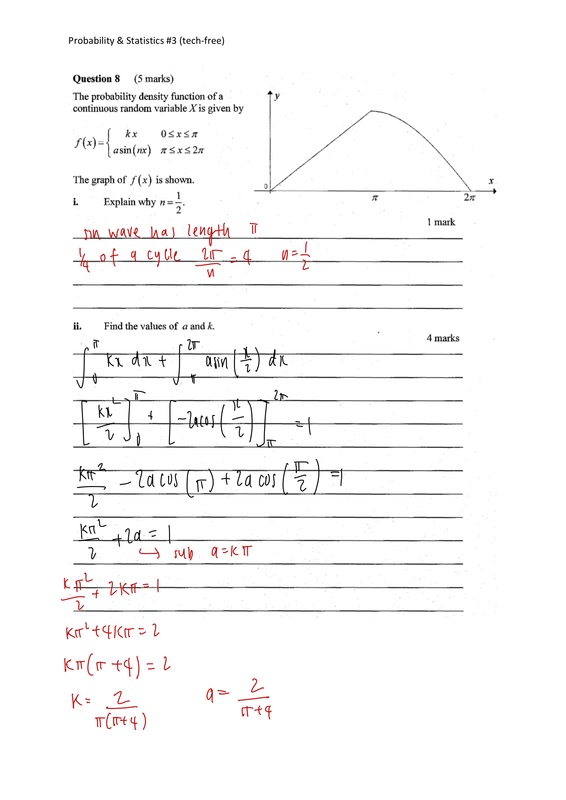 Probability & Statistics #3 (tech-free)
Question 8 (5 marks)
The probability density function of a
continuous random variable X is given by
f(x) = { kx 0 ≤ x ≤ π
a sin(nx) π ≤ x ≤ 2π
y
x
0
π
2π
The graph of f(x) is shown.
i. Explain why n = 1/2.
1 mark
sin wave has length π
1/4 of a cycle 2π/n = 4 n = 1/2
ii. Find the values of a and k.
4 marks
∫_0^π kx dx + ∫_π^2π a sin(x/2) dx
[kx²/2]_0^π + [-2a cos(x/2)]_π^2π = 1
kπ²/2 - 2a cos(π) + 2a cos(π/2) = 1
kπ²/2 + 2a = 1
↪ sub a = kπ
kπ²/2 + 2kπ = 1
kπ² + 4kπ = 2
kπ(π + 4) = 2
k = 2/π(π+4) a = 2/π+4